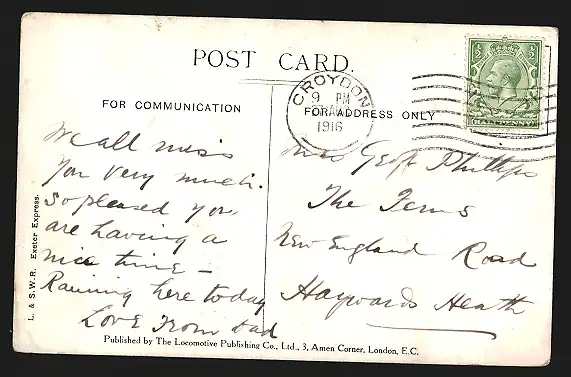 POST CARD.
FOR COMMUNICATION
FOR ADDRESS ONLY
CROYDON
9 PM
AU
1916
HALFPENNY
We all miss
you very much.
so pleased you
are having a
nice time –
Raining here today
Love From Dad
Miss Geoff Phillips
The Ferns
New England Road
Haywards Heath
L. & S.W.R. Exeter Express.
Published by The Locomotive Publishing Co., Ltd., 3, Amen Corner, London, E.C.